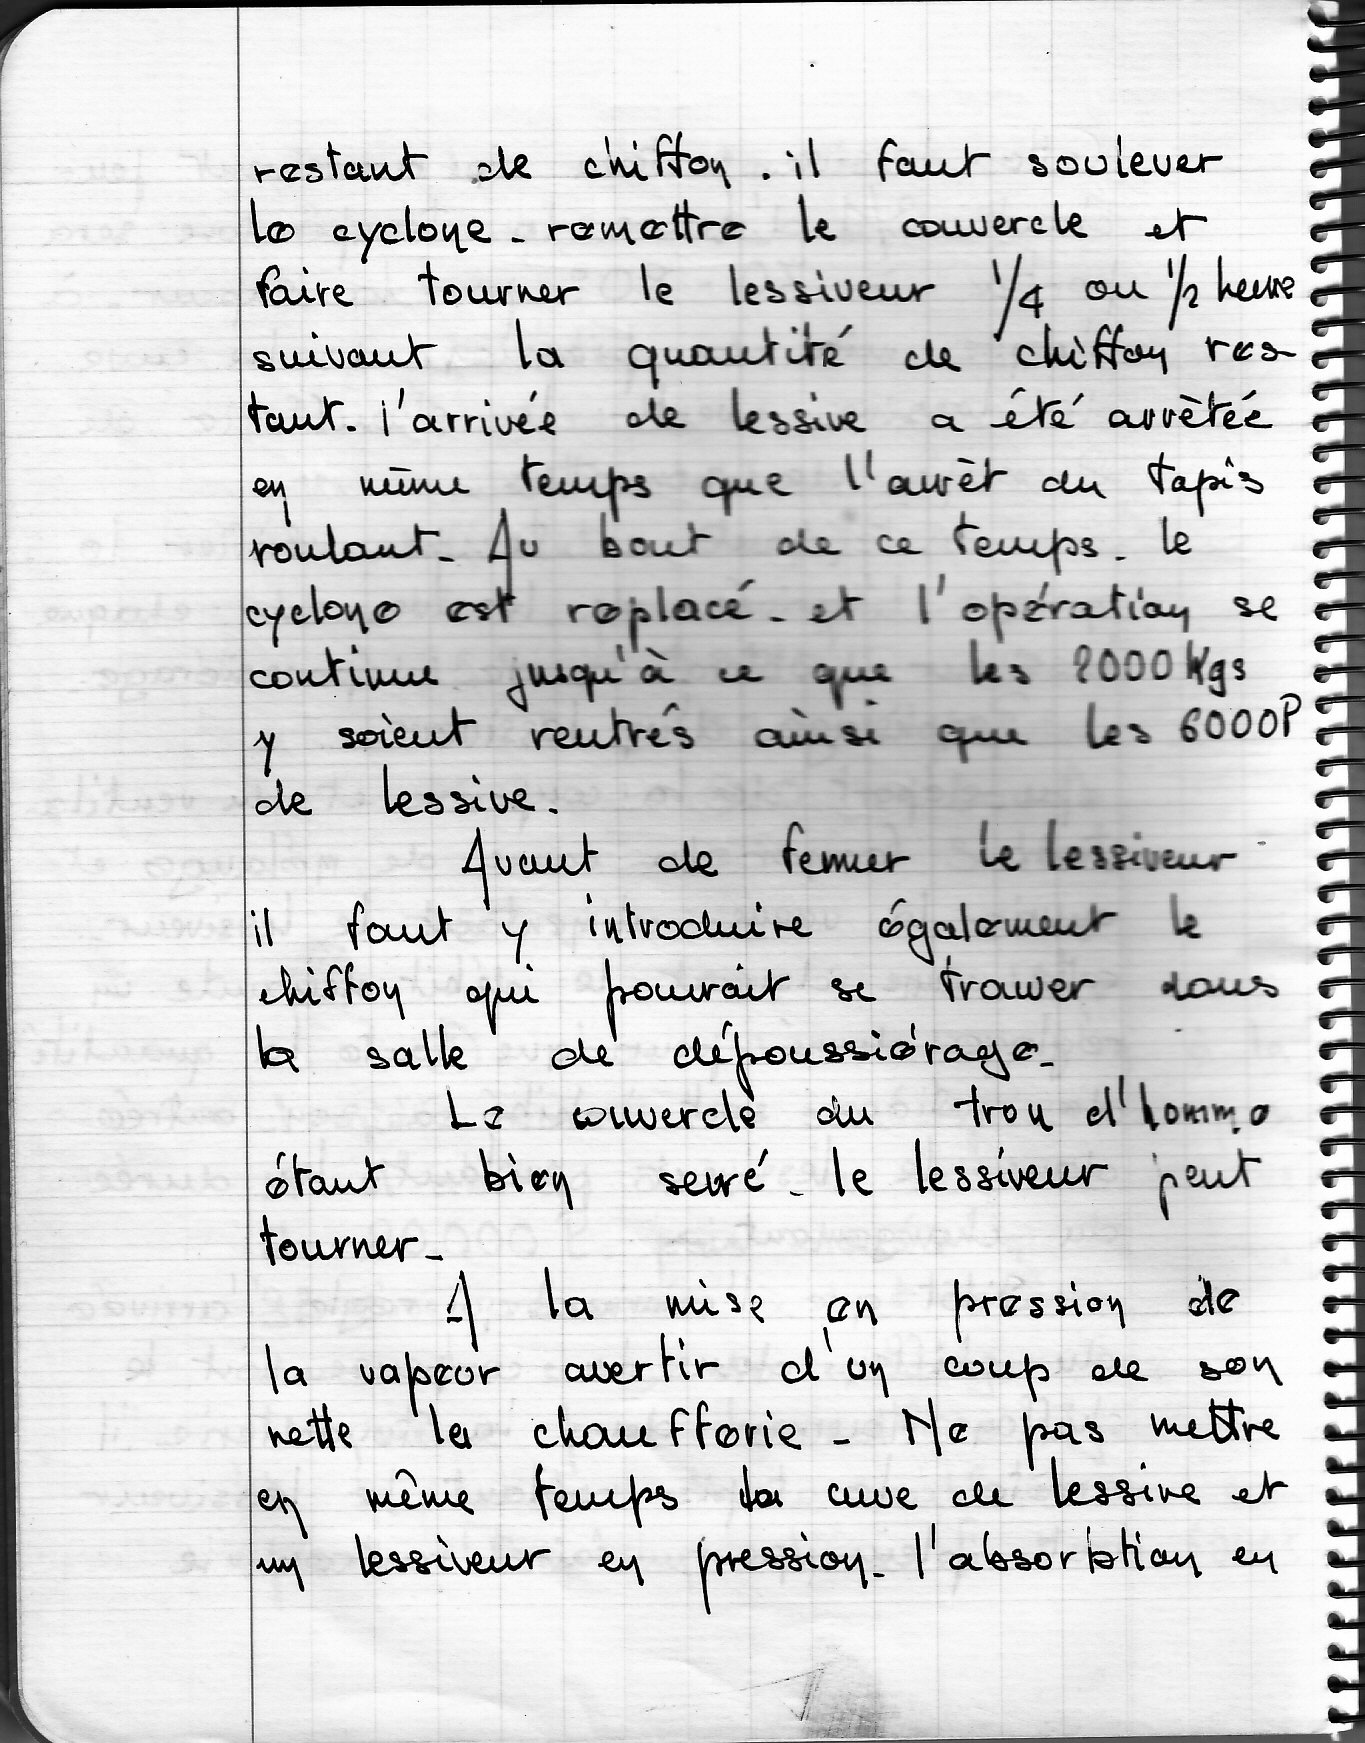 restant de chiffon. il faut soulever
le cyclone - remettre le couvercle et
faire tourner le lessiveur 1/4 ou 1/2 heure
suivant la quantité de chiffon res-
tant. l'arrivée de lessive a été arrêtée
en même temps que l'arrêt du tapis
roulant - Au bout de ce temps - le
cyclone est replacé - et l'opération se
continue jusqu'à ce que les 2000 Kgs
y soient rentrés ainsi que les 6000 P
de lessive.
Avant de fermer le lessiveur
il faut y introduire également le
chiffon qui pourrait se trouver dans
la salle de dépoussiérage -
Le couvercle du trou d'homme
étant bien serré - le lessiveur peut
tourner -
A la mise en pression de
la vapeur avertir d'un coup de son
nette la chaufferie - Ne pas mettre
en même temps la cuve de lessive et
un lessiveur en pression - l'absorbtion en